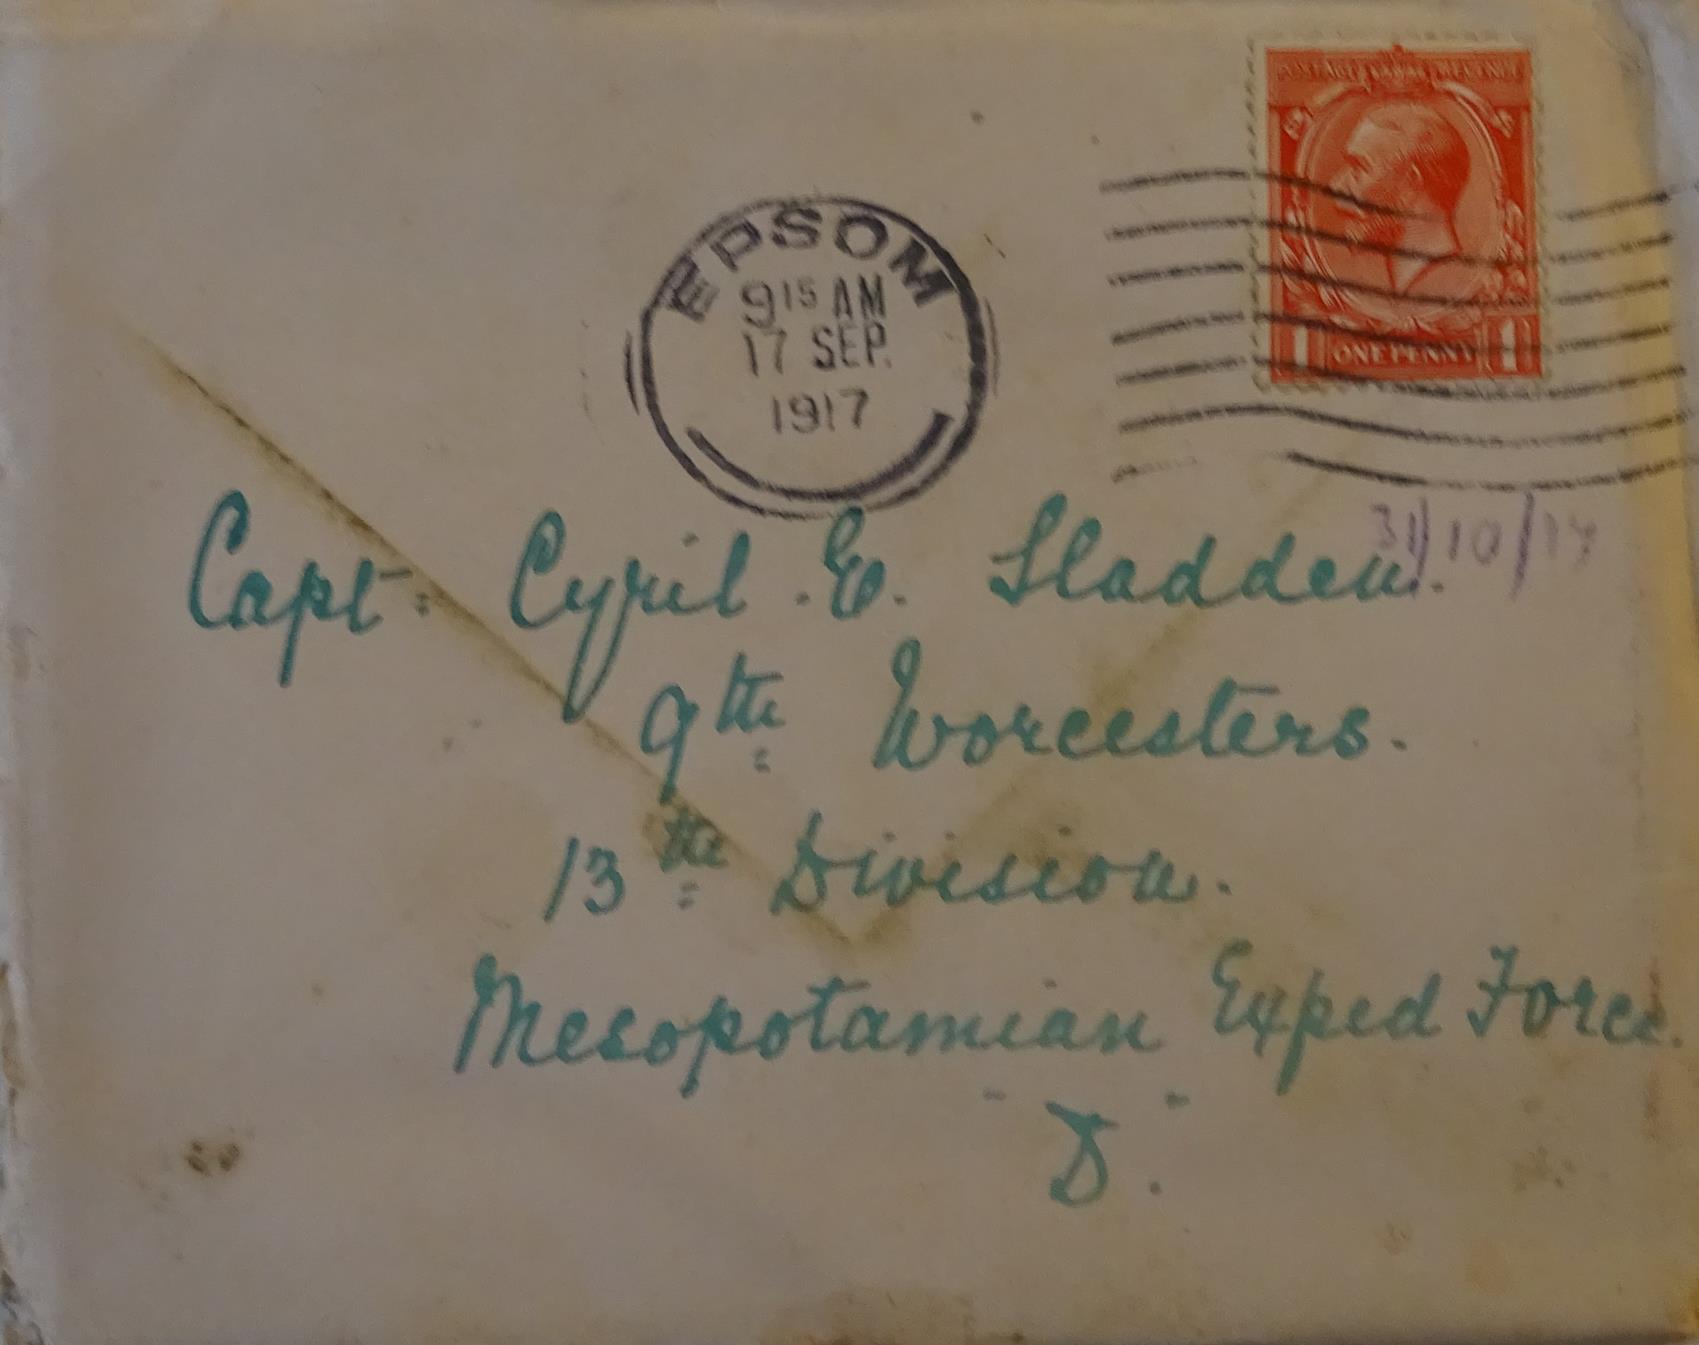 POSTAGE REVENUE
1 ONE PENNY 1
EPSOM
9 15 AM
17 SEP.
1917
31/10/17
Capt: Cyril . E. Sladden.
9th Worcesters.
13th Division.
Mesopotamian Exped Force.
"D".